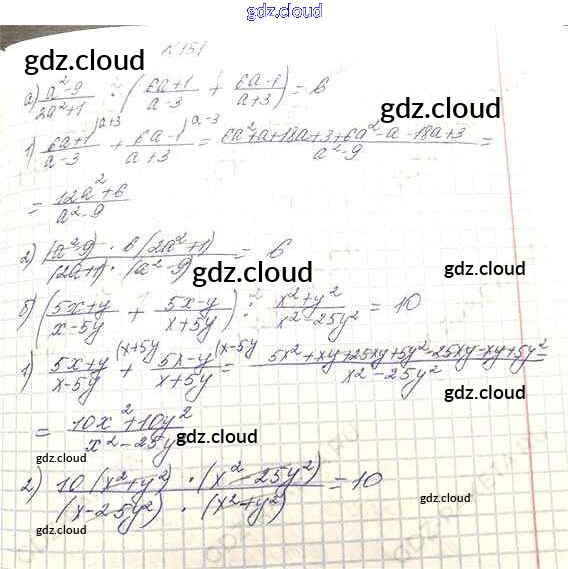 gdz.cloud
№151
gdz.cloud gdz.cloud
а) (a²-9)/(2a²+1) : ((6a+1)/(a-3) + (6a-1)/(a+3)) = 6
gdz.cloud
1) (6a+1)/(a-3) |a+3 + (6a-1)/(a+3) |a-3 = (6a²+a+18a+3+6a²-a-18a+3)/(a²-9) =
= (12a²+6)/(a²-9)
2) ((a²-9) · 6(2a²+1))/((2a+1) · (a²-9)) = 6
gdz.cloud gdz.cloud
б) ((5x+y)/(x-5y) + (5x-y)/(x+5y)) : (x²+y²)/(x²-25y²) = 10
1) (5x+y)/(x-5y) (x+5y + (5x-y)/(x+5y) (x-5y = (5x²+xy+25xy+5y²-25xy-xy+5y²)/(x²-25y²) =
gdz.cloud
= (10x²+10y²)/(x²-25y²)
gdz.cloud
2) (10(x²+y²) · (x²-25y²))/((x-25y²) · (x²+y²)) = 10
gdz.cloud
gdz.cloud
gdz.cloud